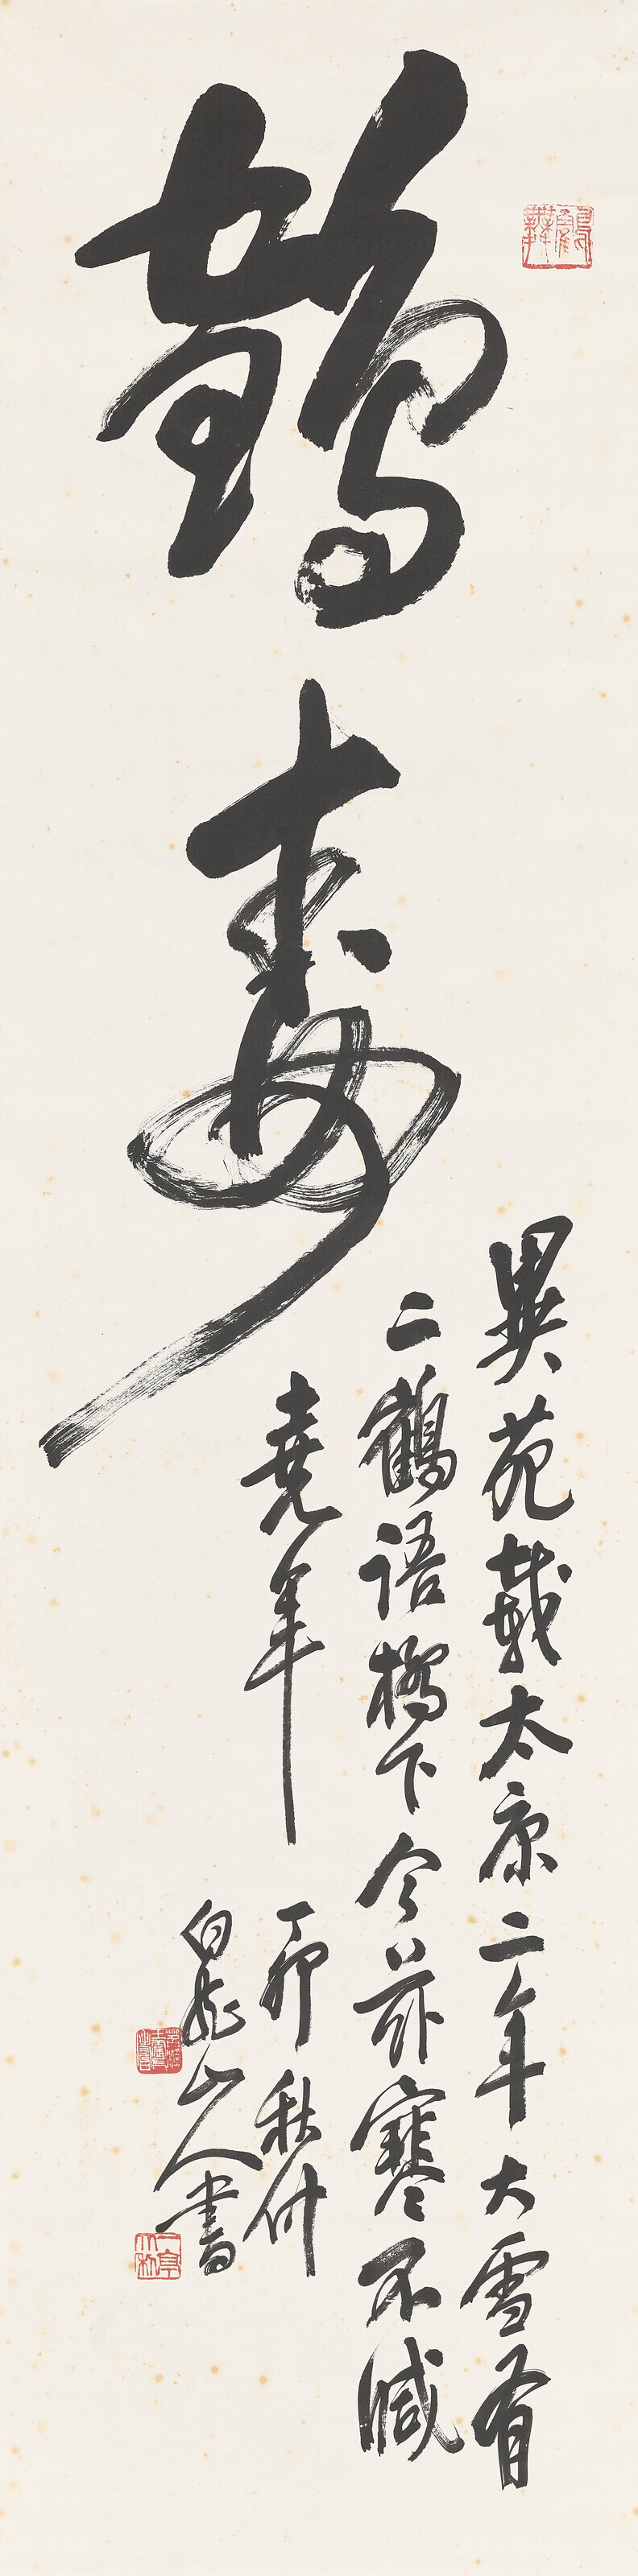 鶴壽
異苑載太康二年大雪有
二鶴語橋下今茲寒不減
堯年
丁卯秋仲
白龍山人書
鶴舞
一亭